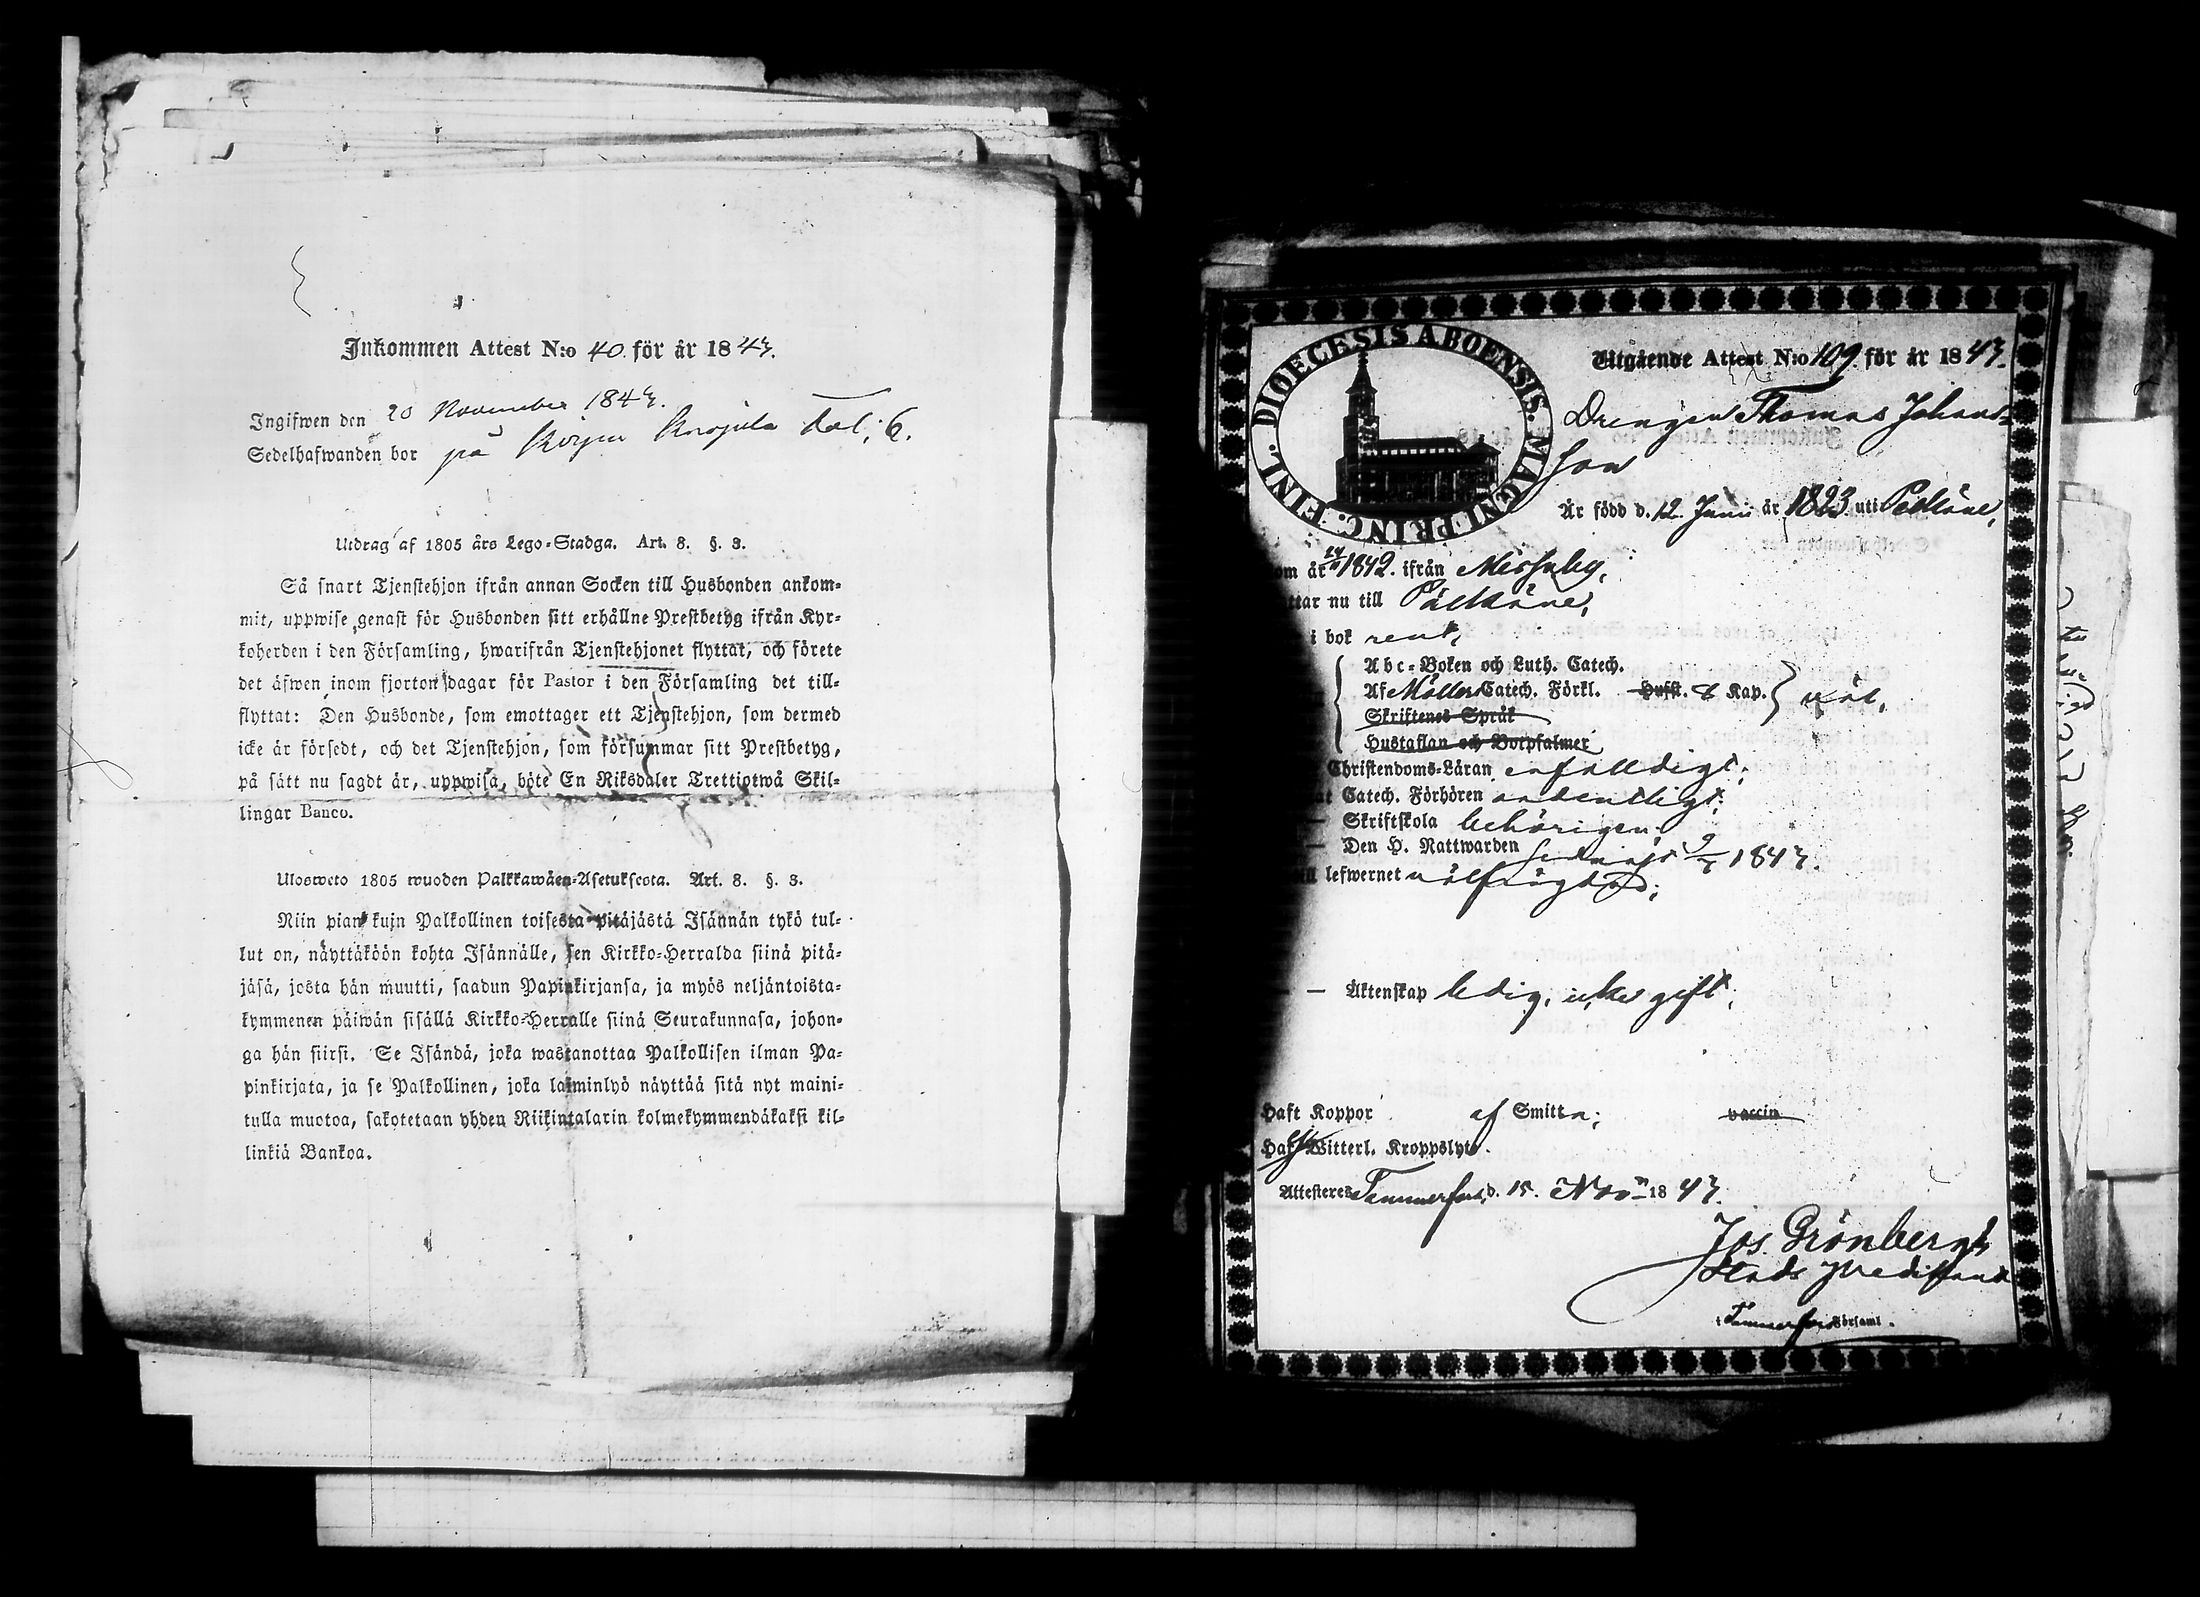 Inkommen Attest N:o 40. för år 1847.
Ingifwen den 20 November 1847.
Sedelhafwanden bor på
Utdrag af 1805 års Lego-Stadga. Art. 8. §. 3.
Så snart Tjenstehjon ifrån annan Socken till Husbonden ankom-
mit, uppwise genast för Husbonden sitt erhållne Prestbetyg ifrån Kyr-
koherden i den Församling, hwarifrån Tjenstehjonet flyttat, och förete
det äfwen inom fjorton dagar för Pastor i den Församling det till-
flyttat: Den Husbonde, som emottager ett Tjenstehjon, som dermed
icke är försedt, och det Tjenstehjon, som försummar sitt Prestbetyg,
på sätt nu sagdt är, uppwisa, böte En Riksdaler Trettiotwå Skil-
lingar Banco.
Ulosweto 1805 wuoden Palkkawäen-Asetuksesta. Art. 8. §. 3.
Niin pian kuin Palkollinen toisesta pitäjästä Isännän tykö tul-
lut on, näyttäköön kohta Isännälle, sen Kirkko-Herralda siinä pitä-
jäsä, josta hän muutti, saadun Papinkirjansa, ja myös neljäntoista-
kymmenen päiwän sisällä Kirkko-Herralle siinä Seurakunnasa, johon-
ga hän siirsi. Se Isändä, joka wastanottaa Palkollisen ilman Pa-
pinkirjata, ja se Palkollinen, joka laiminlyö näyttää sitä nyt maini-
tulla muotoa, sakotetaan yhden Riikintalarin kolmekymmendäkaksi kil-
linkiä Bankoa.
DIOECESIS ABOENSIS. MAGNI PRINC. FINL.
Utgående Attest N:o 109. för år 1847.
Drengen Thomas Johans-
son
Är född d. 12 Junii år 1823 uti Pelkäne,
om år 1842. ifrån Messuby,
ttar nu till Pälkäne,
i bok rent,
Abc-Boken och Luth. Catech.
Af Möllers Catech. Förkl. Husst. 8 Kap. väl,
Skriftenes Språk
Hustaflan och Botpsalmer
Christendoms-Läran enfalldigt;
at Catech. Förhören ordentligt;
Skriftskola behörigen;
Den H. Nattwarden sednast 9/7 1847.
ill lefwernet wälfrägdad;
Äktenskap ledig, icke gift;
Haft Koppor af Smitta; vaccin
Haf Witterl. Kroppslyte.
Attesteres Tammerfors, d. 15. Nov. 1847.
Jos. Grönbergh
Stads Predikant
i Tammerfors Församl.